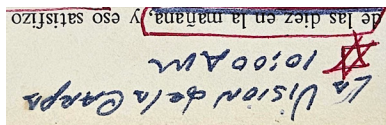 de las diez en la mañana, y eso satisfizo
10:00 AM
La Vision de la Carpa